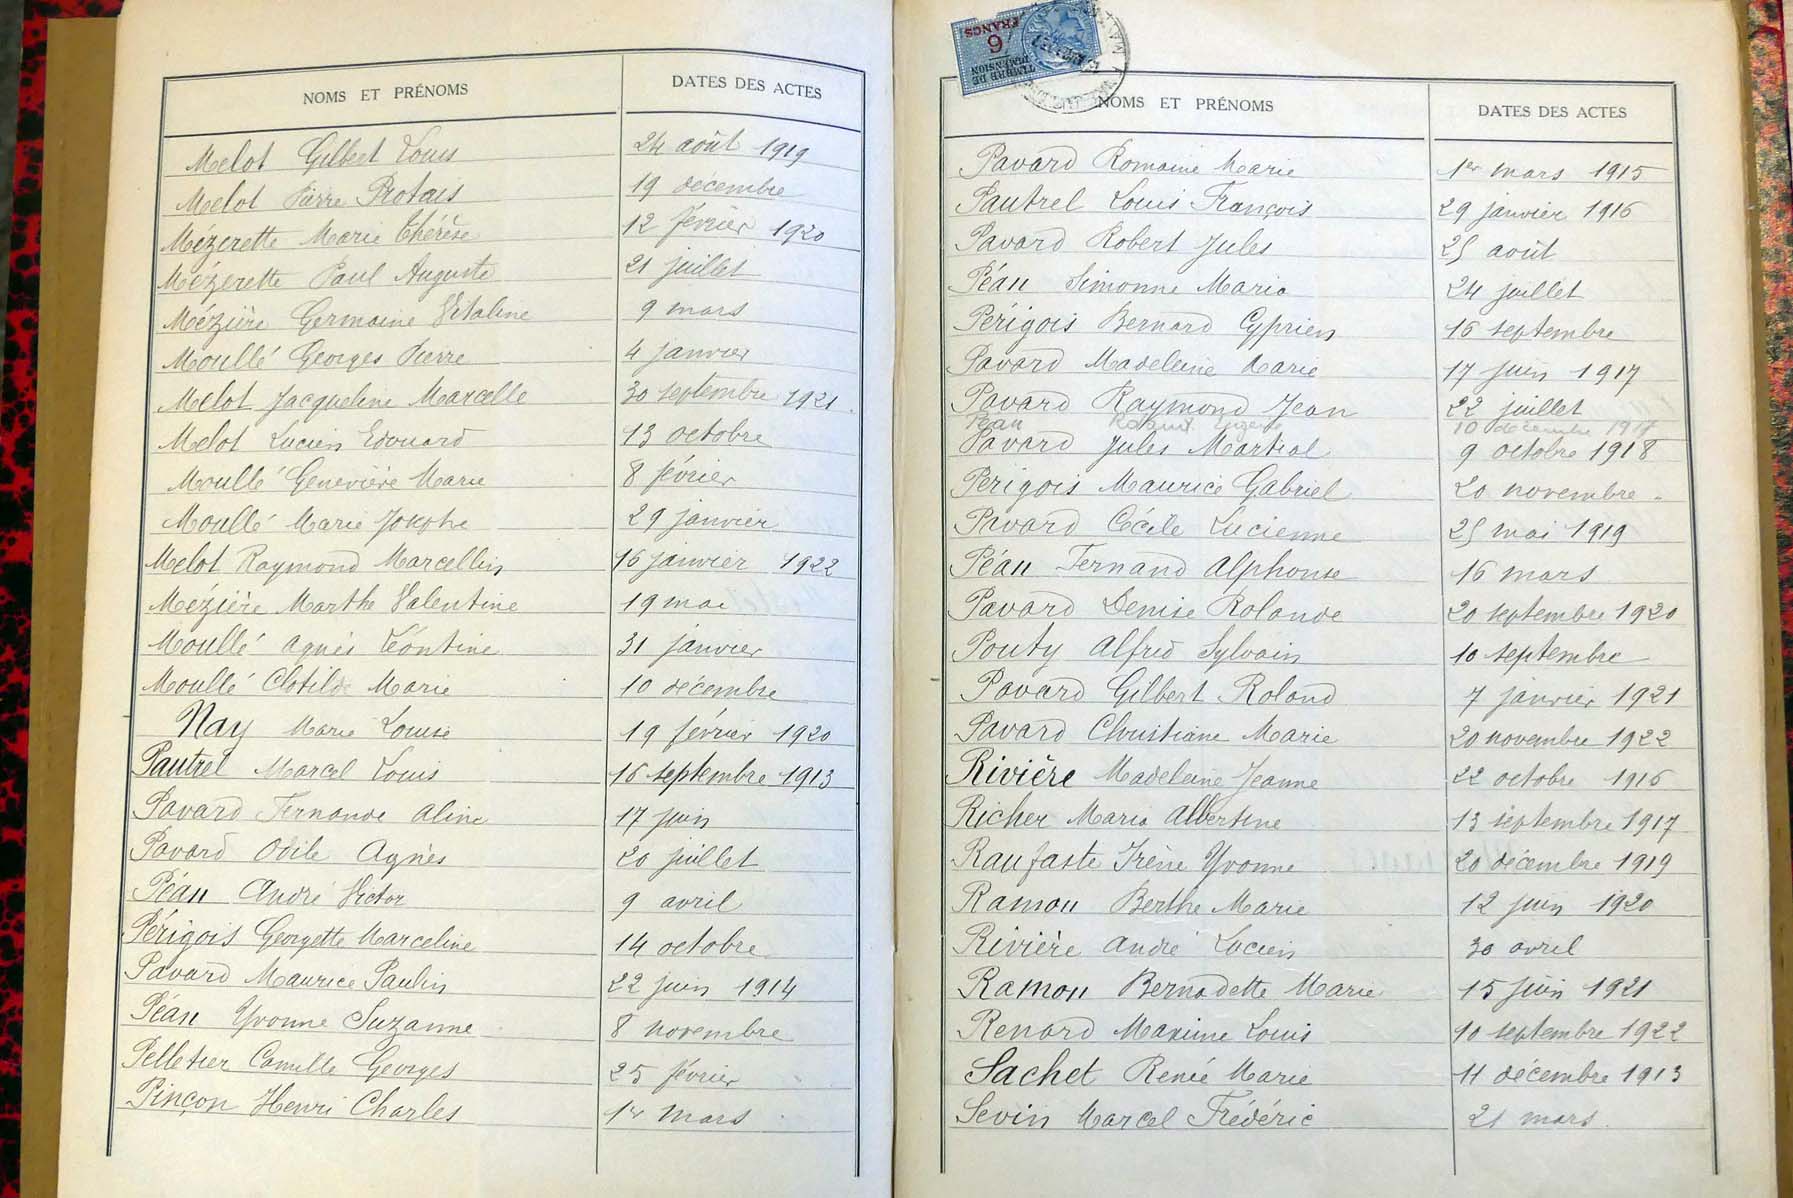 NOMS ET PRÉNOMS DATES DES ACTES
Melot Gilbert Louis 24 août 1919
Melot Pierre Protais 19 décembre
Mézerette Marie Thérèse 12 février 1920
Mézerette Paul Auguste 21 juillet
Mézière Germaine Vitaline 9 mars
Moullé Georges Pierre 4 janvier
Melot Jacqueline Marcelle 30 septembre 1921.
Melot Lucien Edouard 13 octobre
Moullé Geneviève Marie 8 février
Moullé Marie Josephe 29 janvier
Melot Raymond Marcellin 16 janvier 1922
Mézière Marthe Valentine 19 mai
Moullé Agnès Léontine 31 janvier
Moullé Clotilde Marie 10 décembre
Nay Marie Louise 19 février 1920
Pautrel Marcel Louis 16 septembre 1913
Pavard Fernande Aline 17 juin
Pavard Odile Agnès 20 juillet
Péan André Victor 9 avril
Périgois Georgette Marceline 14 octobre
Pavard Maurice Paulin 22 juin 1914
Péan Yvonne Suzanne 8 novembre
Pelletier Camille Georges 25 février
Pinçon Henri Charles 1er mars
6
FRANCS
TIMBRE DE
DIMENSION
NOMS ET PRÉNOMS DATES DES ACTES
Pavard Romaine Marie 1er mars 1915
Pautrel Louis François 29 janvier 1916
Pavard Robert Jules 25 août
Péan Simonne Maria 24 juillet
Périgois Bernard Cyprien 16 septembre
Pavard Madeleine Marie 17 juin 1917
Pavard Raymond Jean 22 juillet
Péan Robert Eugène 10 décembre 1917
Pavard Jules Martial 9 octobre 1918
Périgois Maurice Gabriel 20 novembre
Pavard Cécile Lucienne 25 mai 1919
Péan Fernand Alphonse 16 mars
Pavard Denise Rolande 20 septembre 1920
Pouty Alfred Sylvain 10 septembre
Pavard Gilbert Roland 7 janvier 1921
Pavard Christiane Marie 20 novembre 1922
Rivière Madeleine Jeanne 22 octobre 1916
Richer Maria Albertine 13 septembre 1917
Raufaste Irène Yvonne 20 décembre 1919
Ramon Berthe Marie 12 juin 1920
Rivière André Lucien 30 avril
Ramon Bernadette Marie 15 juin 1921
Renard Maxime Louis 10 septembre 1922
Sachet Renée Marie 11 décembre 1913
Sevin Marcel Frédéric 21 mars